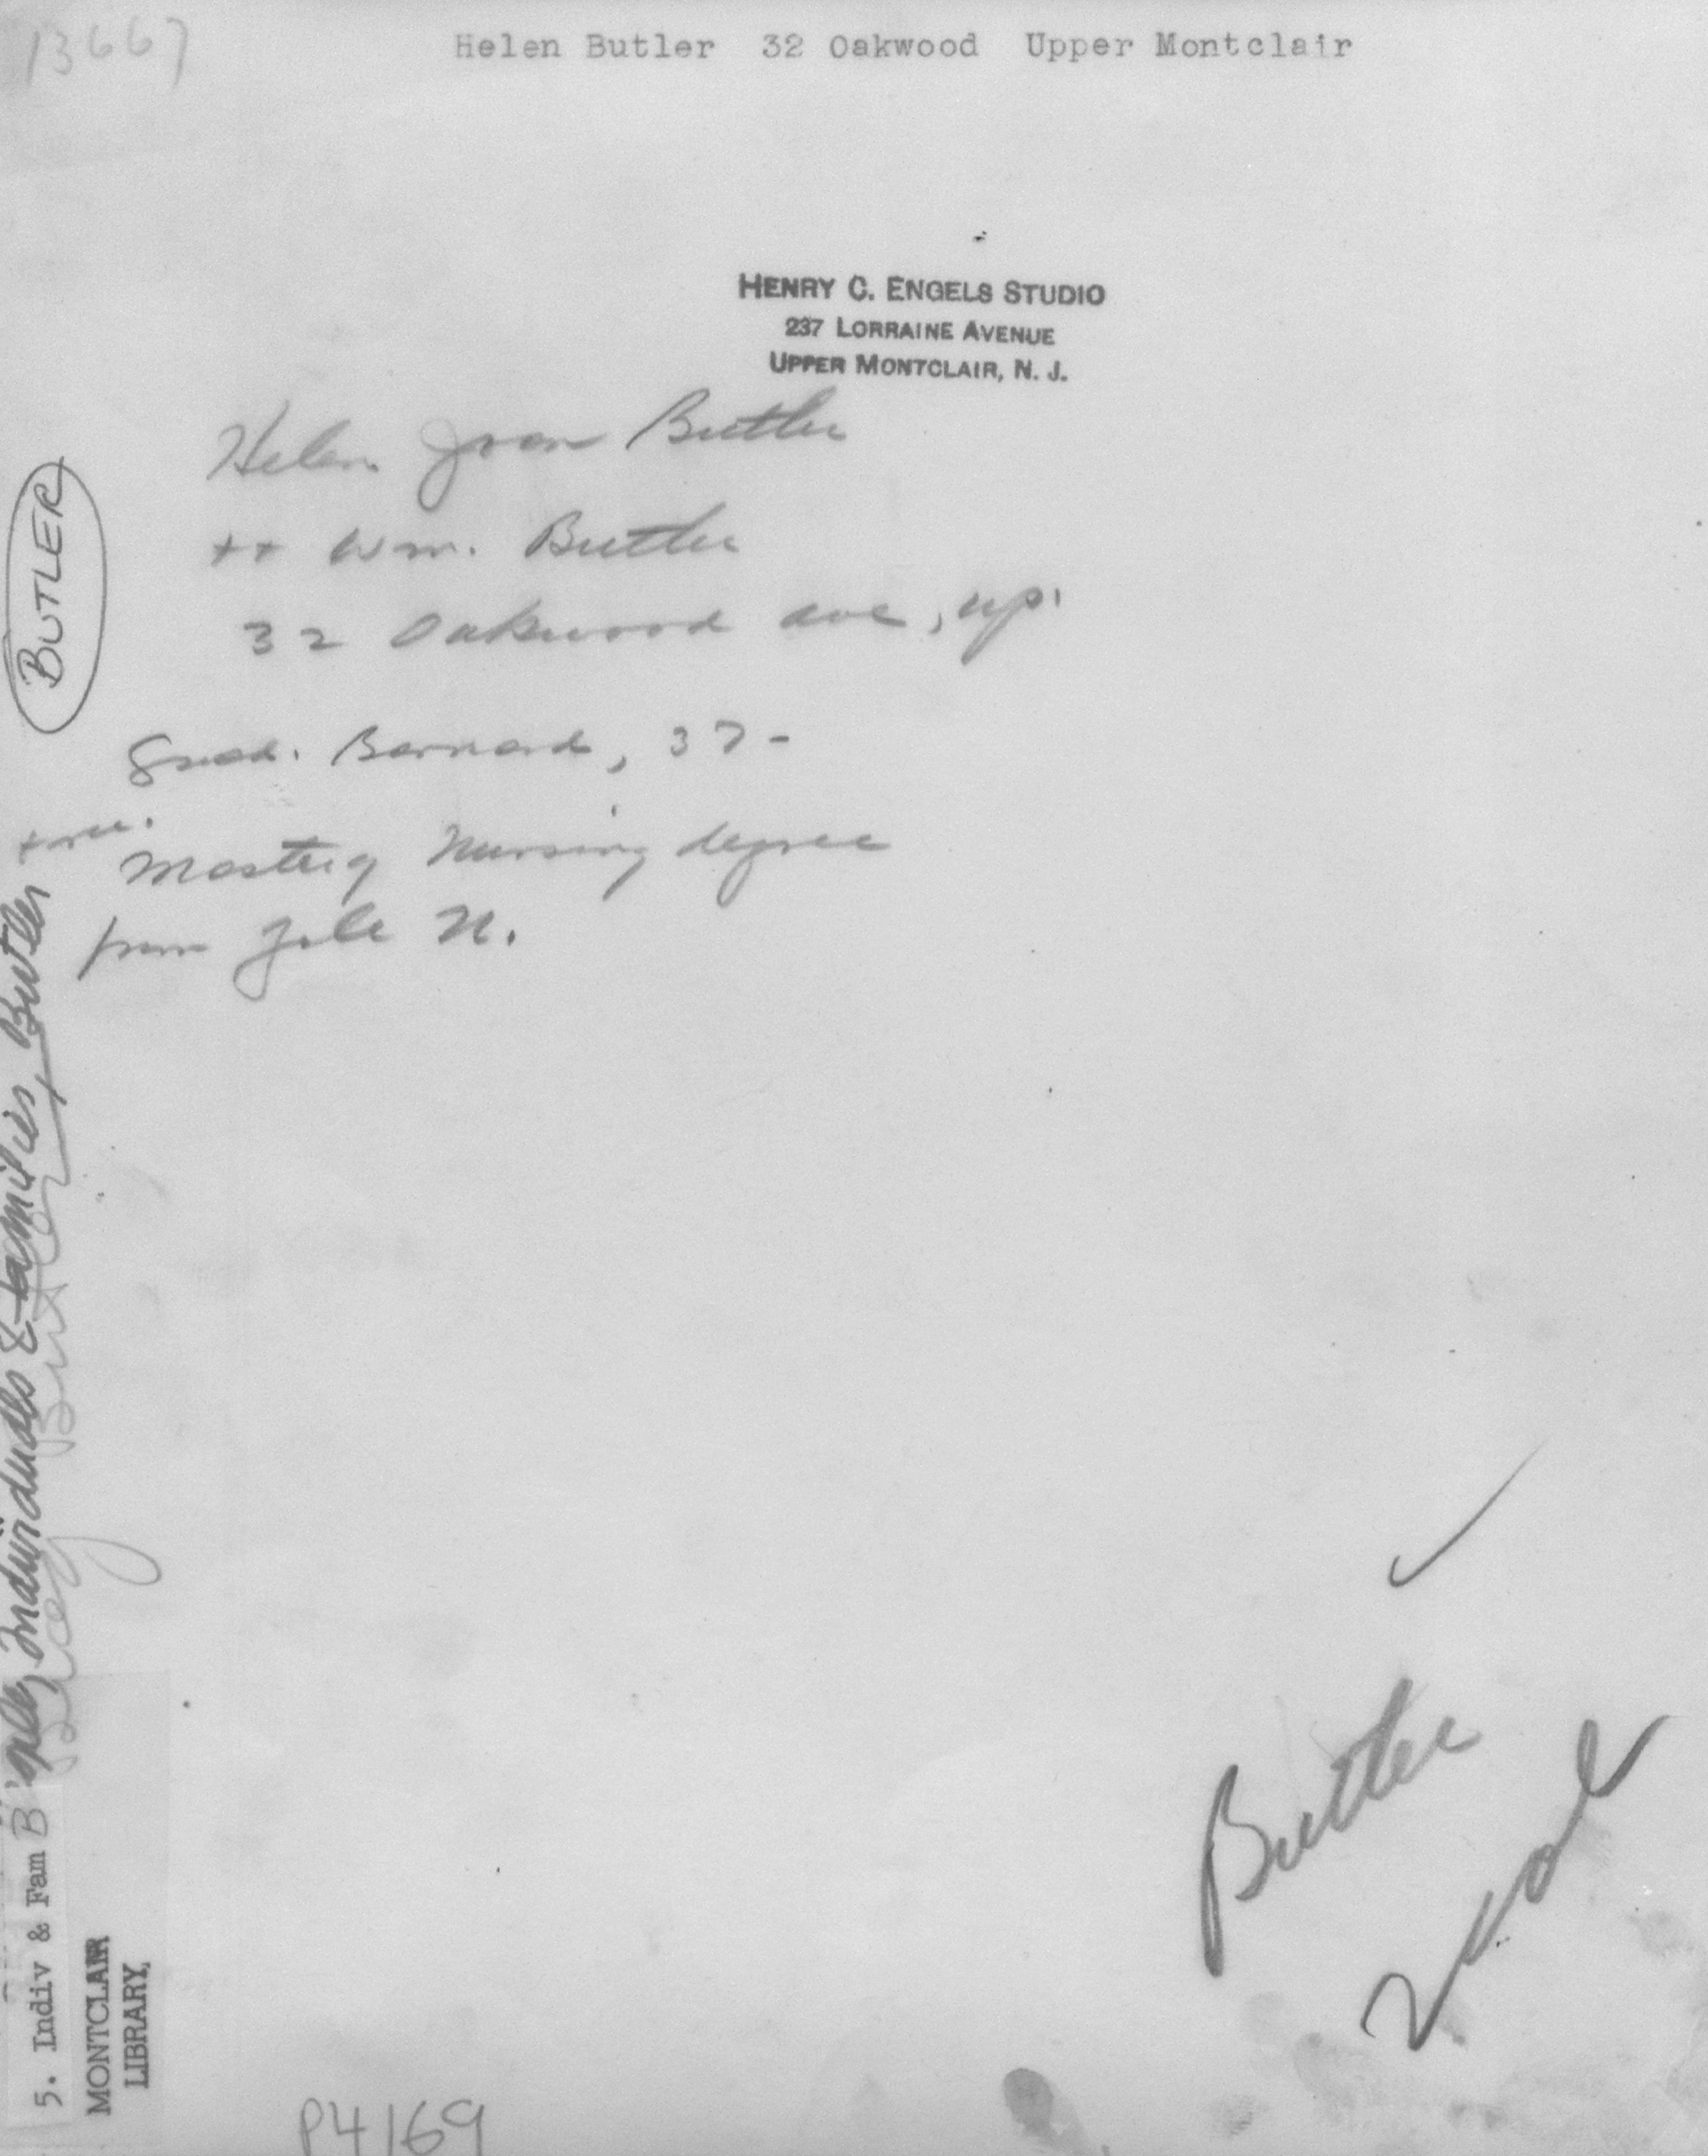 13667
Helen Butler 32 Oakwood Upper Montclair
HENRY C. ENGELS STUDIO
237 LORRAINE AVENUE
UPPER MONTCLAIR, N. J.
Helen Joan Butler
++ Wm. Butler
32 Oakwood ave, up.
Grad. Barnard, 37-
Master of Nursing degree
from Yale U.
BUTLER
Individuals & families, Butler
5. Indiv & Fam B
MONTCLAIR
LIBRARY,
Butler
P4169